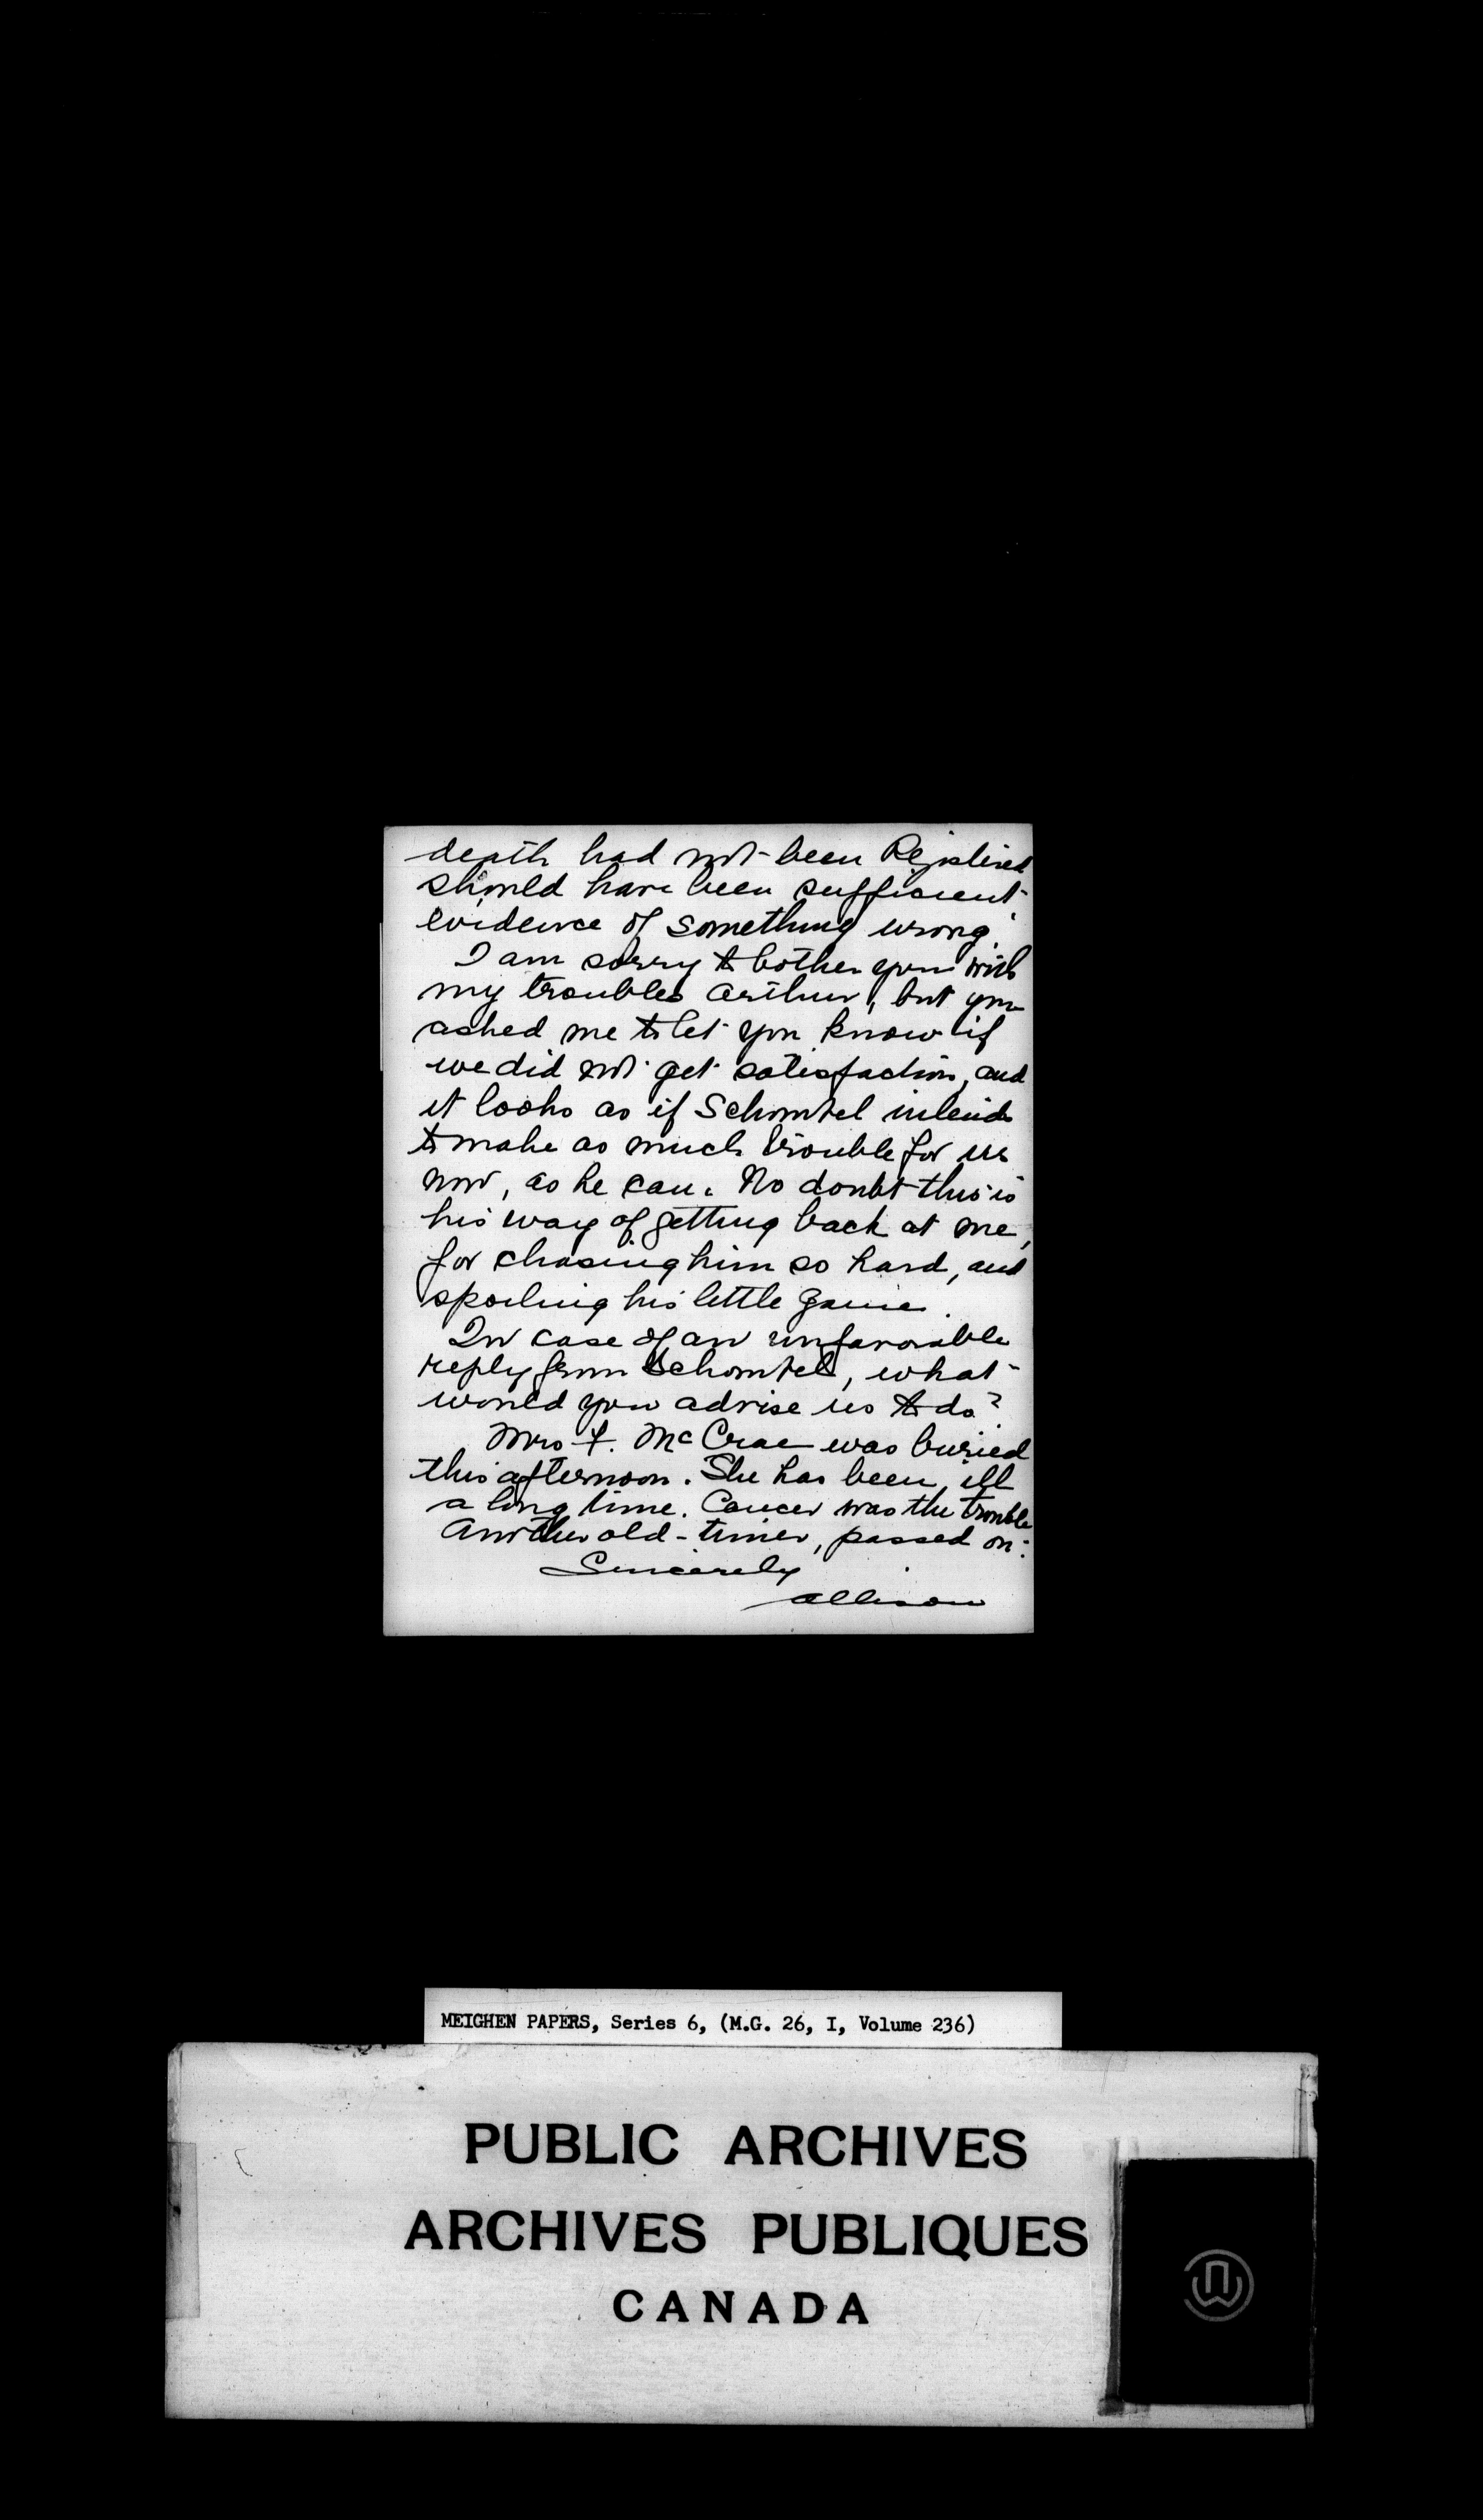 death had not been Registered
should have been sufficient
evidence of something wrong.
I am sorry to bother you with
my troubles Arthur, but you
asked me to let you know if
we did not get satisfaction, and
it looks as if Schontel intends
to make as much trouble for us
now, as he can. No doubt this is
his way of getting back at me,
for chasing him so hard, and
spoiling his little game.
In case of an unfavorable
reply from Schontel, what
would you advise us to do?
Mrs F. McCrae was buried
this afternoon. She has been ill
a long time. Cancer was the trouble
Another old-timer, passed on.
Sincerely
Allison
MEIGHEN PAPERS, Series 6, (M.G. 26, I, Volume 236)
PUBLIC ARCHIVES
ARCHIVES PUBLIQUES
CANADA